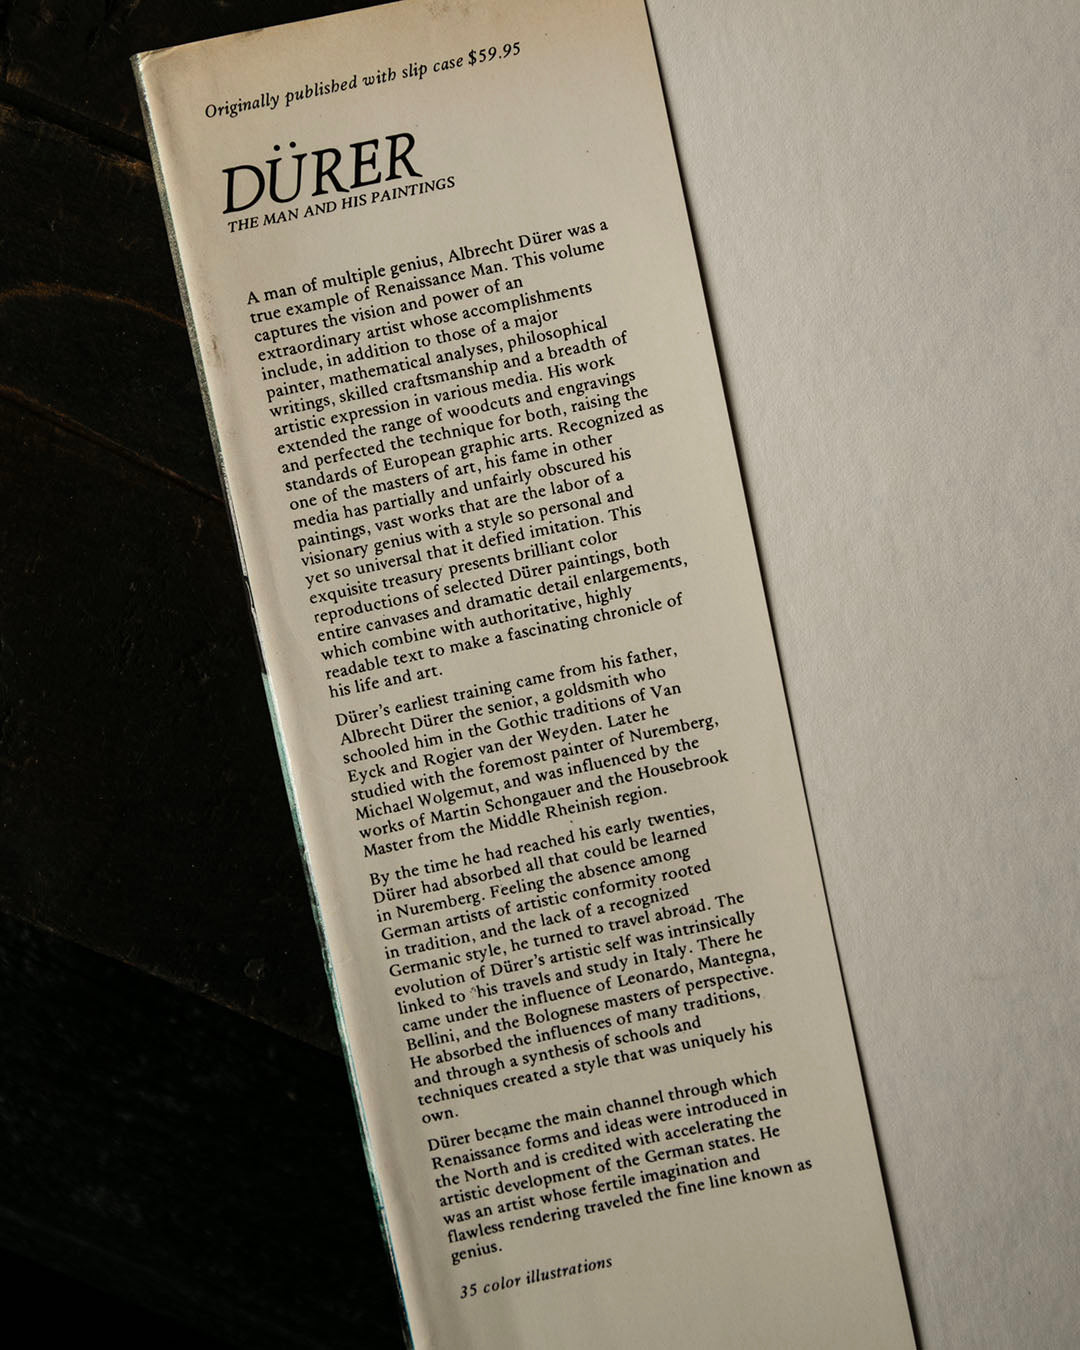 Originally published with slip case $59.95
DÜRER
THE MAN AND HIS PAINTINGS
A man of multiple genius, Albrecht Dürer was a
true example of Renaissance Man. This volume
captures the vision and power of an
extraordinary artist whose accomplishments
include, in addition to those of a major
painter, mathematical analyses, philosophical
writings, skilled craftsmanship and a breadth of
artistic expression in various media. His work
extended the range of woodcuts and engravings
and perfected the technique for both, raising the
standards of European graphic arts. Recognized as
one of the masters of art, his fame in other
media has partially and unfairly obscured his
paintings, vast works that are the labor of a
visionary genius with a style so personal and
yet so universal that it defied imitation. This
exquisite treasury presents brilliant color
reproductions of selected Dürer paintings, both
entire canvases and dramatic detail enlargements,
which combine with authoritative, highly
readable text to make a fascinating chronicle of
his life and art.
Dürer's earliest training came from his father,
Albrecht Dürer the senior, a goldsmith who
schooled him in the Gothic traditions of Van
Eyck and Rogier van der Weyden. Later he
studied with the foremost painter of Nuremberg,
Michael Wolgemut, and was influenced by the
works of Martin Schongauer and the Housebrook
Master from the Middle Rheinish region.
By the time he had reached his early twenties,
Dürer had absorbed all that could be learned
in Nuremberg. Feeling the absence among
German artists of artistic conformity rooted
in tradition, and the lack of a recognized
Germanic style, he turned to travel abroad. The
evolution of Dürer's artistic self was intrinsically
linked to his travels and study in Italy. There he
came under the influence of Leonardo, Mantegna,
Bellini, and the Bolognese masters of perspective.
He absorbed the influences of many traditions,
and through a synthesis of schools and
techniques created a style that was uniquely his
own.
Dürer became the main channel through which
Renaissance forms and ideas were introduced in
the North and is credited with accelerating the
artistic development of the German states. He
was an artist whose fertile imagination and
flawless rendering traveled the fine line known as
genius.
35 color illustrations